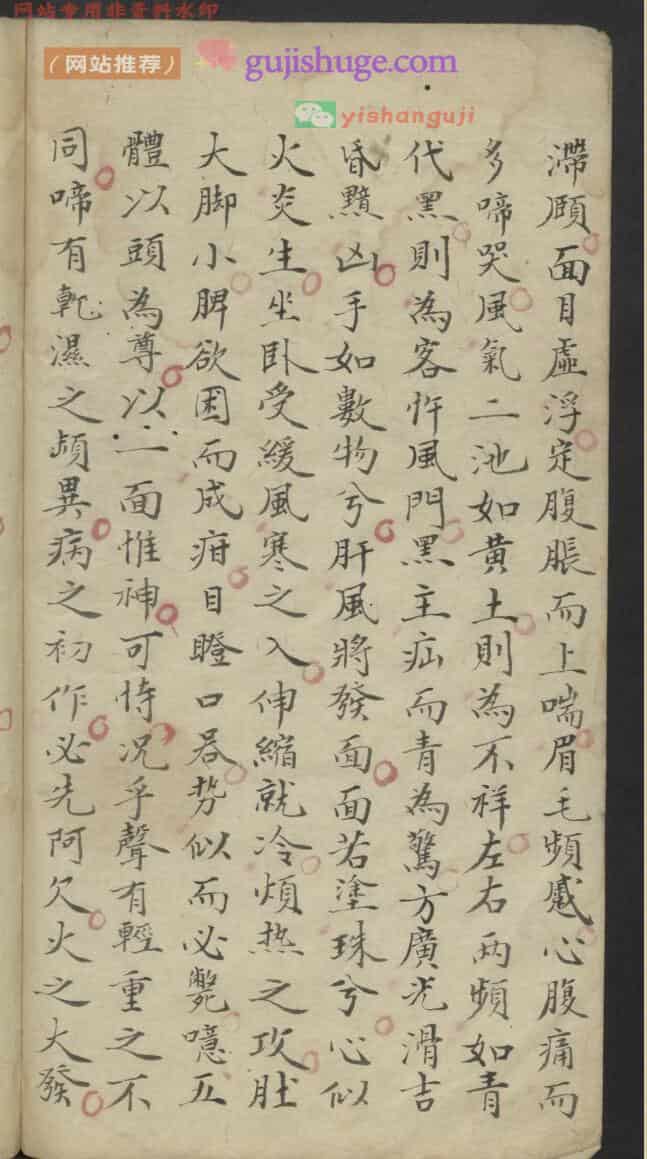 网站专用非资料水印
（网站推荐） gujishuge.com
yishanguji
滯頤面目虛浮定腹脹而上喘眉毛頻蹙心腹痛而
多啼哭風氣二池如黃土則為不祥左右两頻如青
代黑則為客忤風門黑主疝而青為驚方廣光滑吉
昏黯凶手如數物兮肝風將發面面若塗珠兮心似
火炎生坐卧受緩風寒之入伸縮就冷煩热之攻肚
大脚小脾欲困而成疳目瞪口呆势似而必斃噫五
體以頭為尊以一面惟神可恃况乎聲有輕重之不
同啼有乾濕之頻異病之初作必先阿欠火之大發